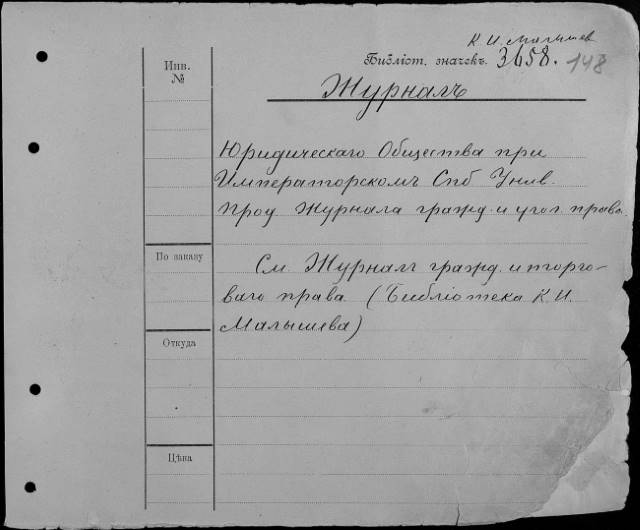 К. И. Малышев
Инв.
№
Библіот. значекъ. 3658. 148
Журналъ
Юридическаго Общества при
Императорскомъ Спб Унив.
Прод Журнала гражд. и угол. права.
По заказу
См Журналъ гражд. и торго-
ваго права (Библіотека К. И.
Малышева)
Откуда
Цѣна